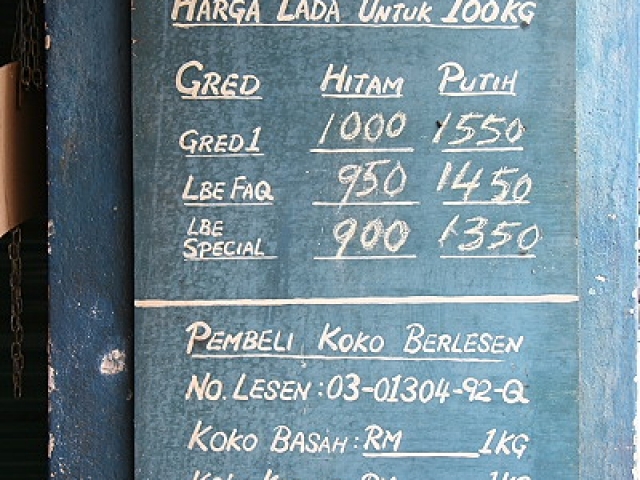 HARGA LADA UNTUK 100KG
GRED HITAM PUTIH
GRED 1 1000 1550
LBE FAQ 950 1450
LBE SPECIAL 900 1350
PEMBELI KOKO BERLESEN
NO. LESEN : 03-01304-92-Q
KOKO BASAH : RM 1KG